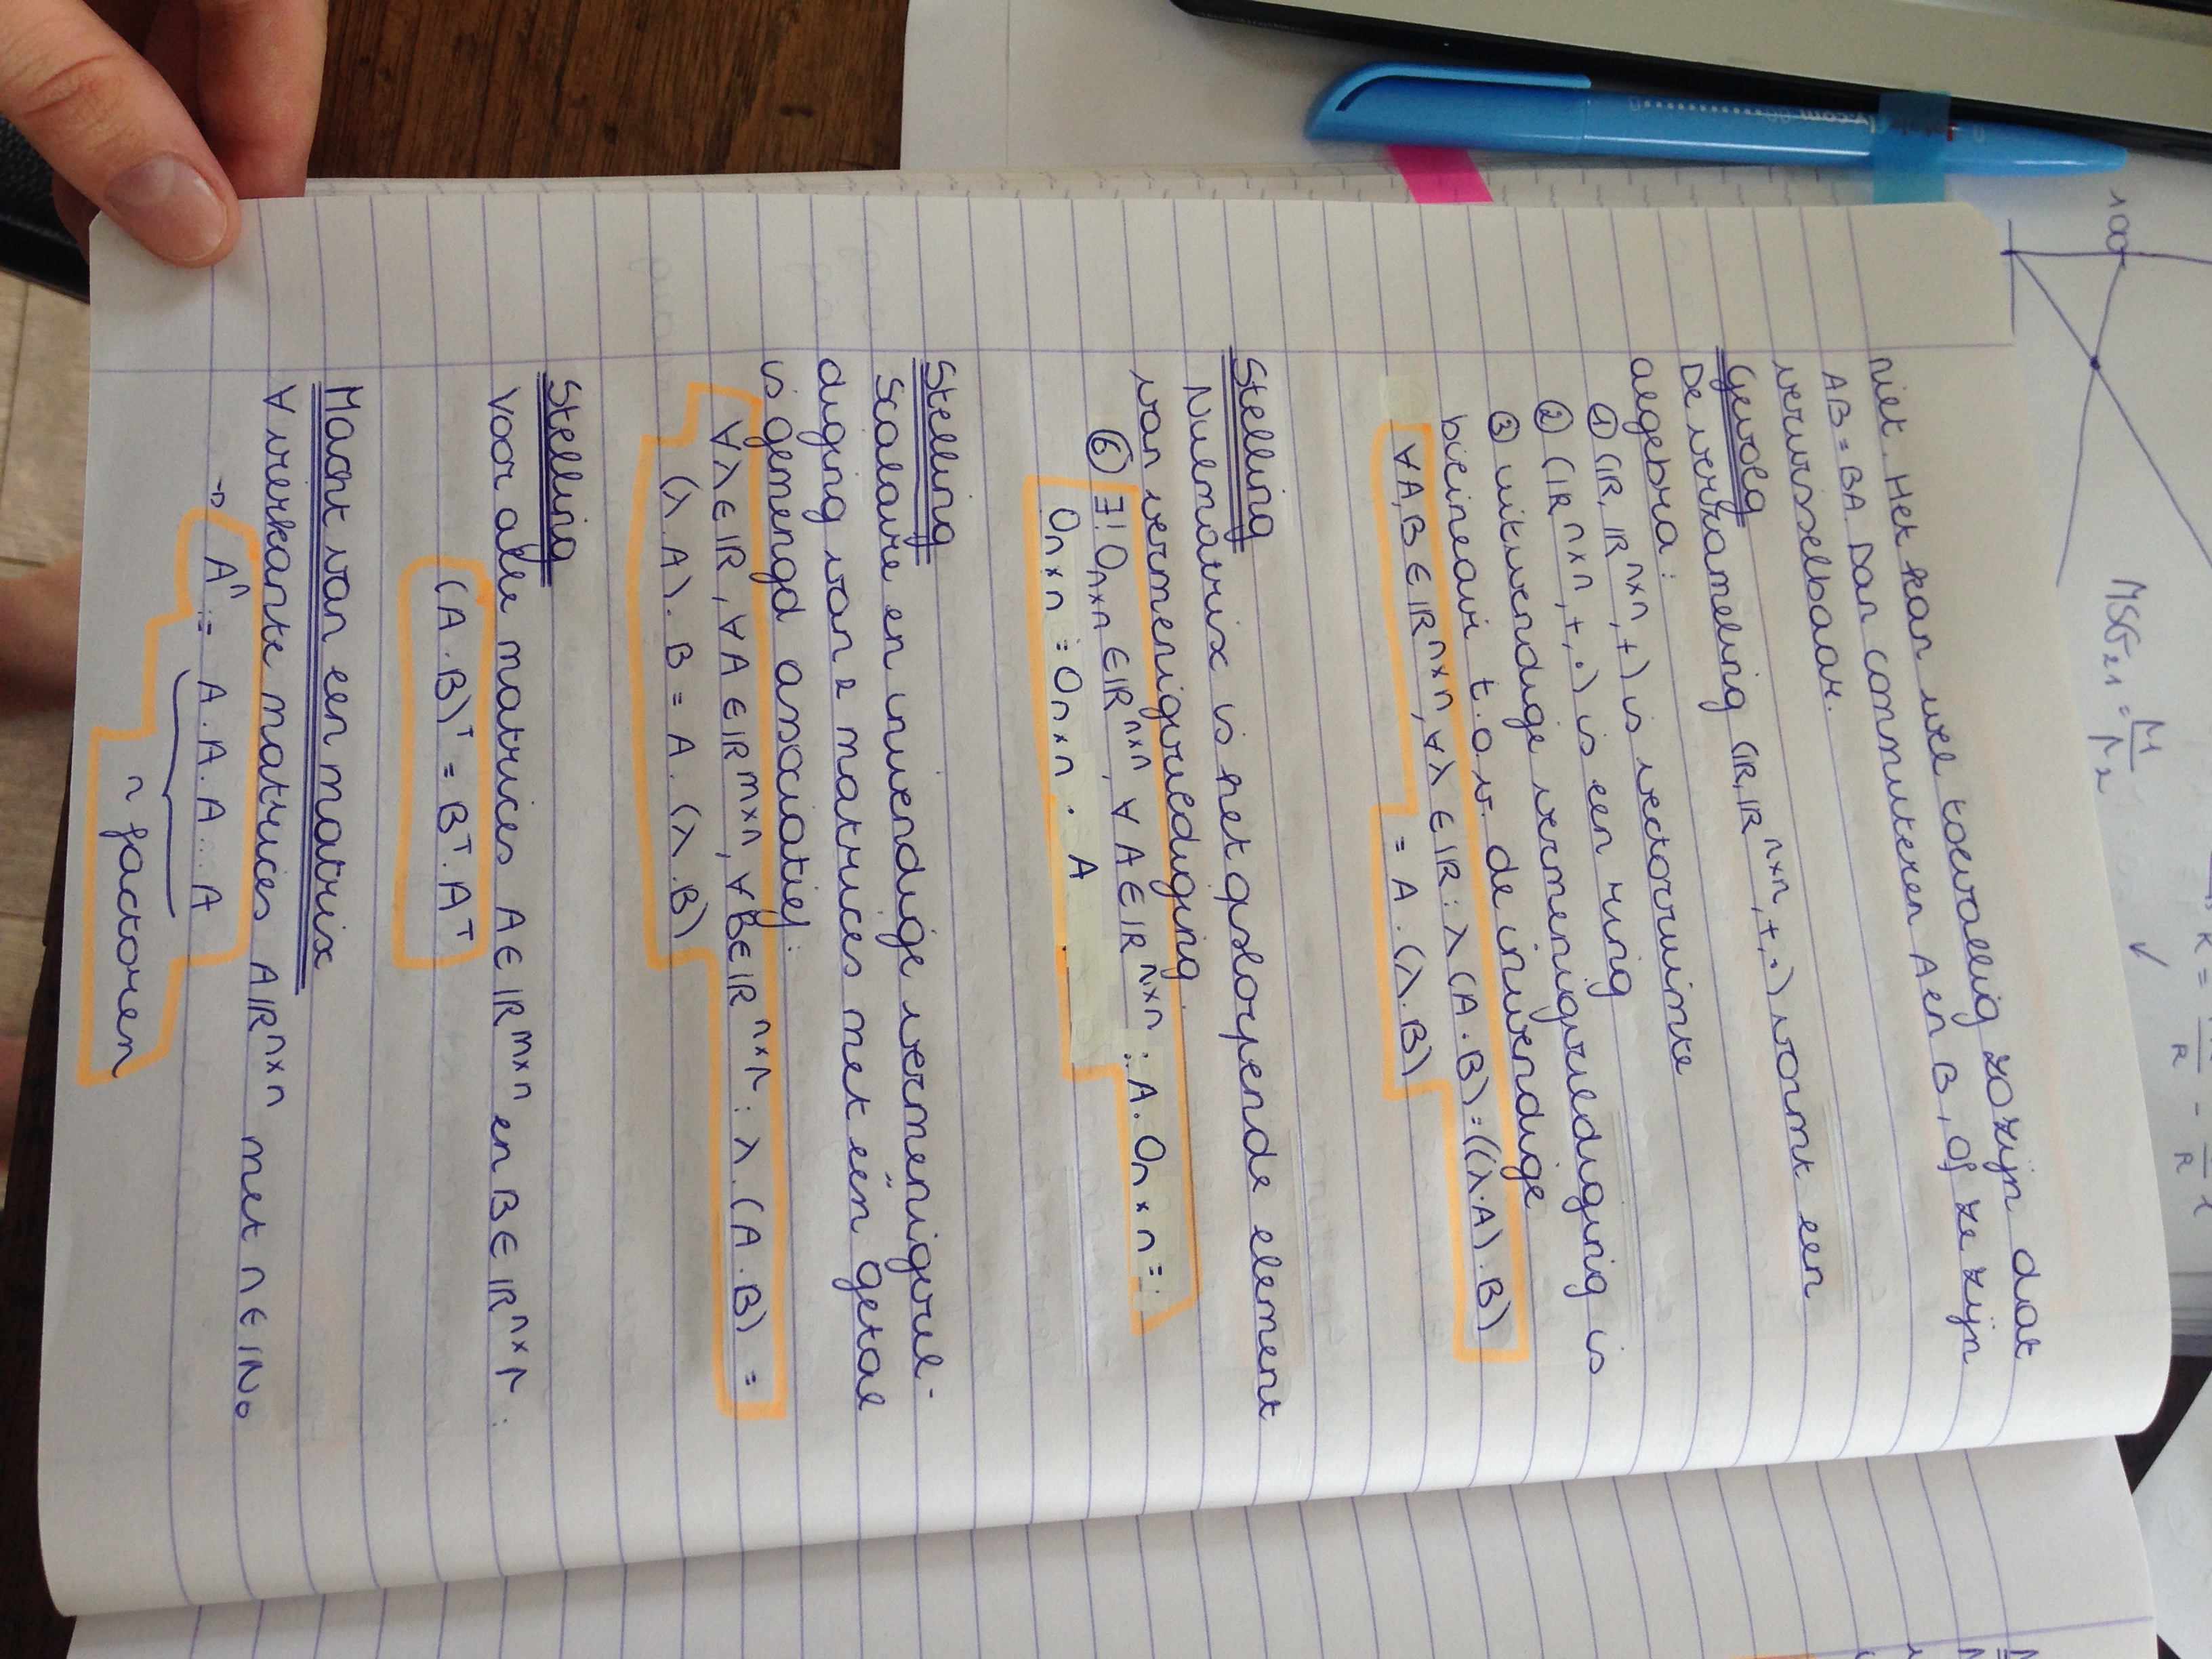 niet. Het kan wel toevallig zo zijn dat
AB = BA. Dan commuteren A en B, of ze zijn
verwisselbaar.
Gevolg
De verzameling (ℝ, ℝⁿˣⁿ, +, .) vormt een
algebra:
① (ℝ, ℝⁿˣⁿ, +) is vectorruimte
② (ℝⁿˣⁿ, +, .) is een ring
③ uitwendige vermenigvuldiging is
bilineair t.o.v. de inwendige
∀A, B ∈ ℝⁿˣⁿ, ∀λ ∈ ℝ : λ (A . B) = ((λ . A) . B)
= A . (λ . B)
Stelling
Nulmatrix is het opslorpende element
van vermenigvuldiging.
⑥ ∃! Oₙₓₙ ∈ ℝⁿˣⁿ, ∀ A ∈ ℝⁿˣⁿ : A . Oₙₓₙ =
Oₙₓₙ = Oₙₓₙ . A
Stelling
Scalaire en inwendige vermenigvul-
diging van 2 matrices met eén getal
is gemengd associatief:
∀λ ∈ ℝ, ∀A ∈ ℝᵐˣⁿ, ∀B ∈ ℝⁿˣʳ : λ . (A . B) =
(λ . A) . B = A . (λ . B)
Stelling
Voor alle matrices A ∈ ℝᵐˣⁿ en B ∈ ℝⁿˣʳ :
(A . B)ᵀ = Bᵀ . Aᵀ
Macht van een matrix
∀ vierkante matrices A ℝⁿˣⁿ met n ∈ ℕ₀
→ Aⁿ := A . A . A .... A
n factoren
100
MSG₂₁ = M/N₂
ly.com